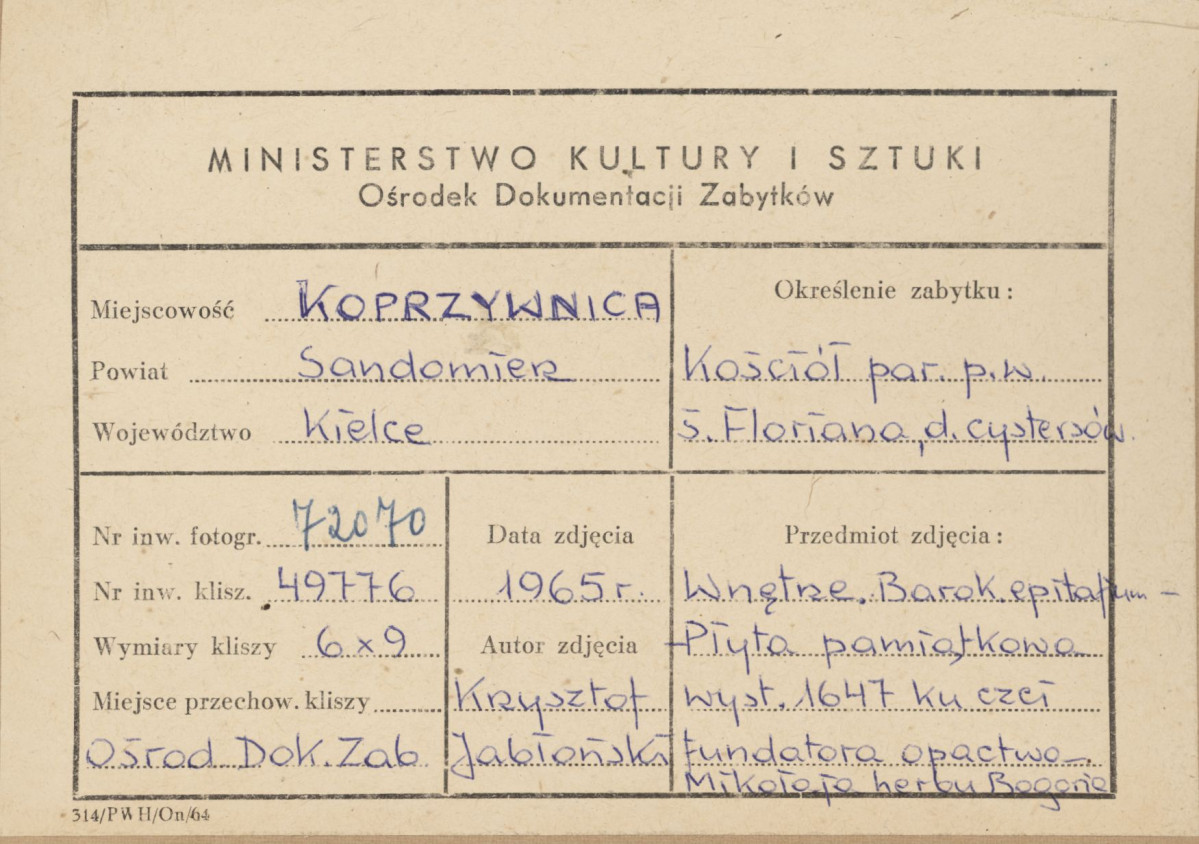 MINISTERSTWO KULTURY I SZTUKI
Ośrodek Dokumentacji Zabytków
Miejscowość KOPRZYWNICA
Powiat Sandomierz
Województwo Kielce
Określenie zabytku:
Kościół par. p.w.
ś. Floriana, d. cystersów.
Nr inw. fotogr. 72070
Nr inw. klisz. 49776
Wymiary kliszy 6x9
Miejsce przechow. kliszy
Ośrod Dok. Zab
Data zdjęcia
1965 r.
Autor zdjęcia
Krzysztof
Jabłoński
Przedmiot zdjęcia:
Wnętrze. Barok. epitafjum -
- Płyta pamiątkowa
wyst. 1647 ku czci
fundatora opactwa -.
Mikołaja herbu Bogoria
314/PWH/On/64